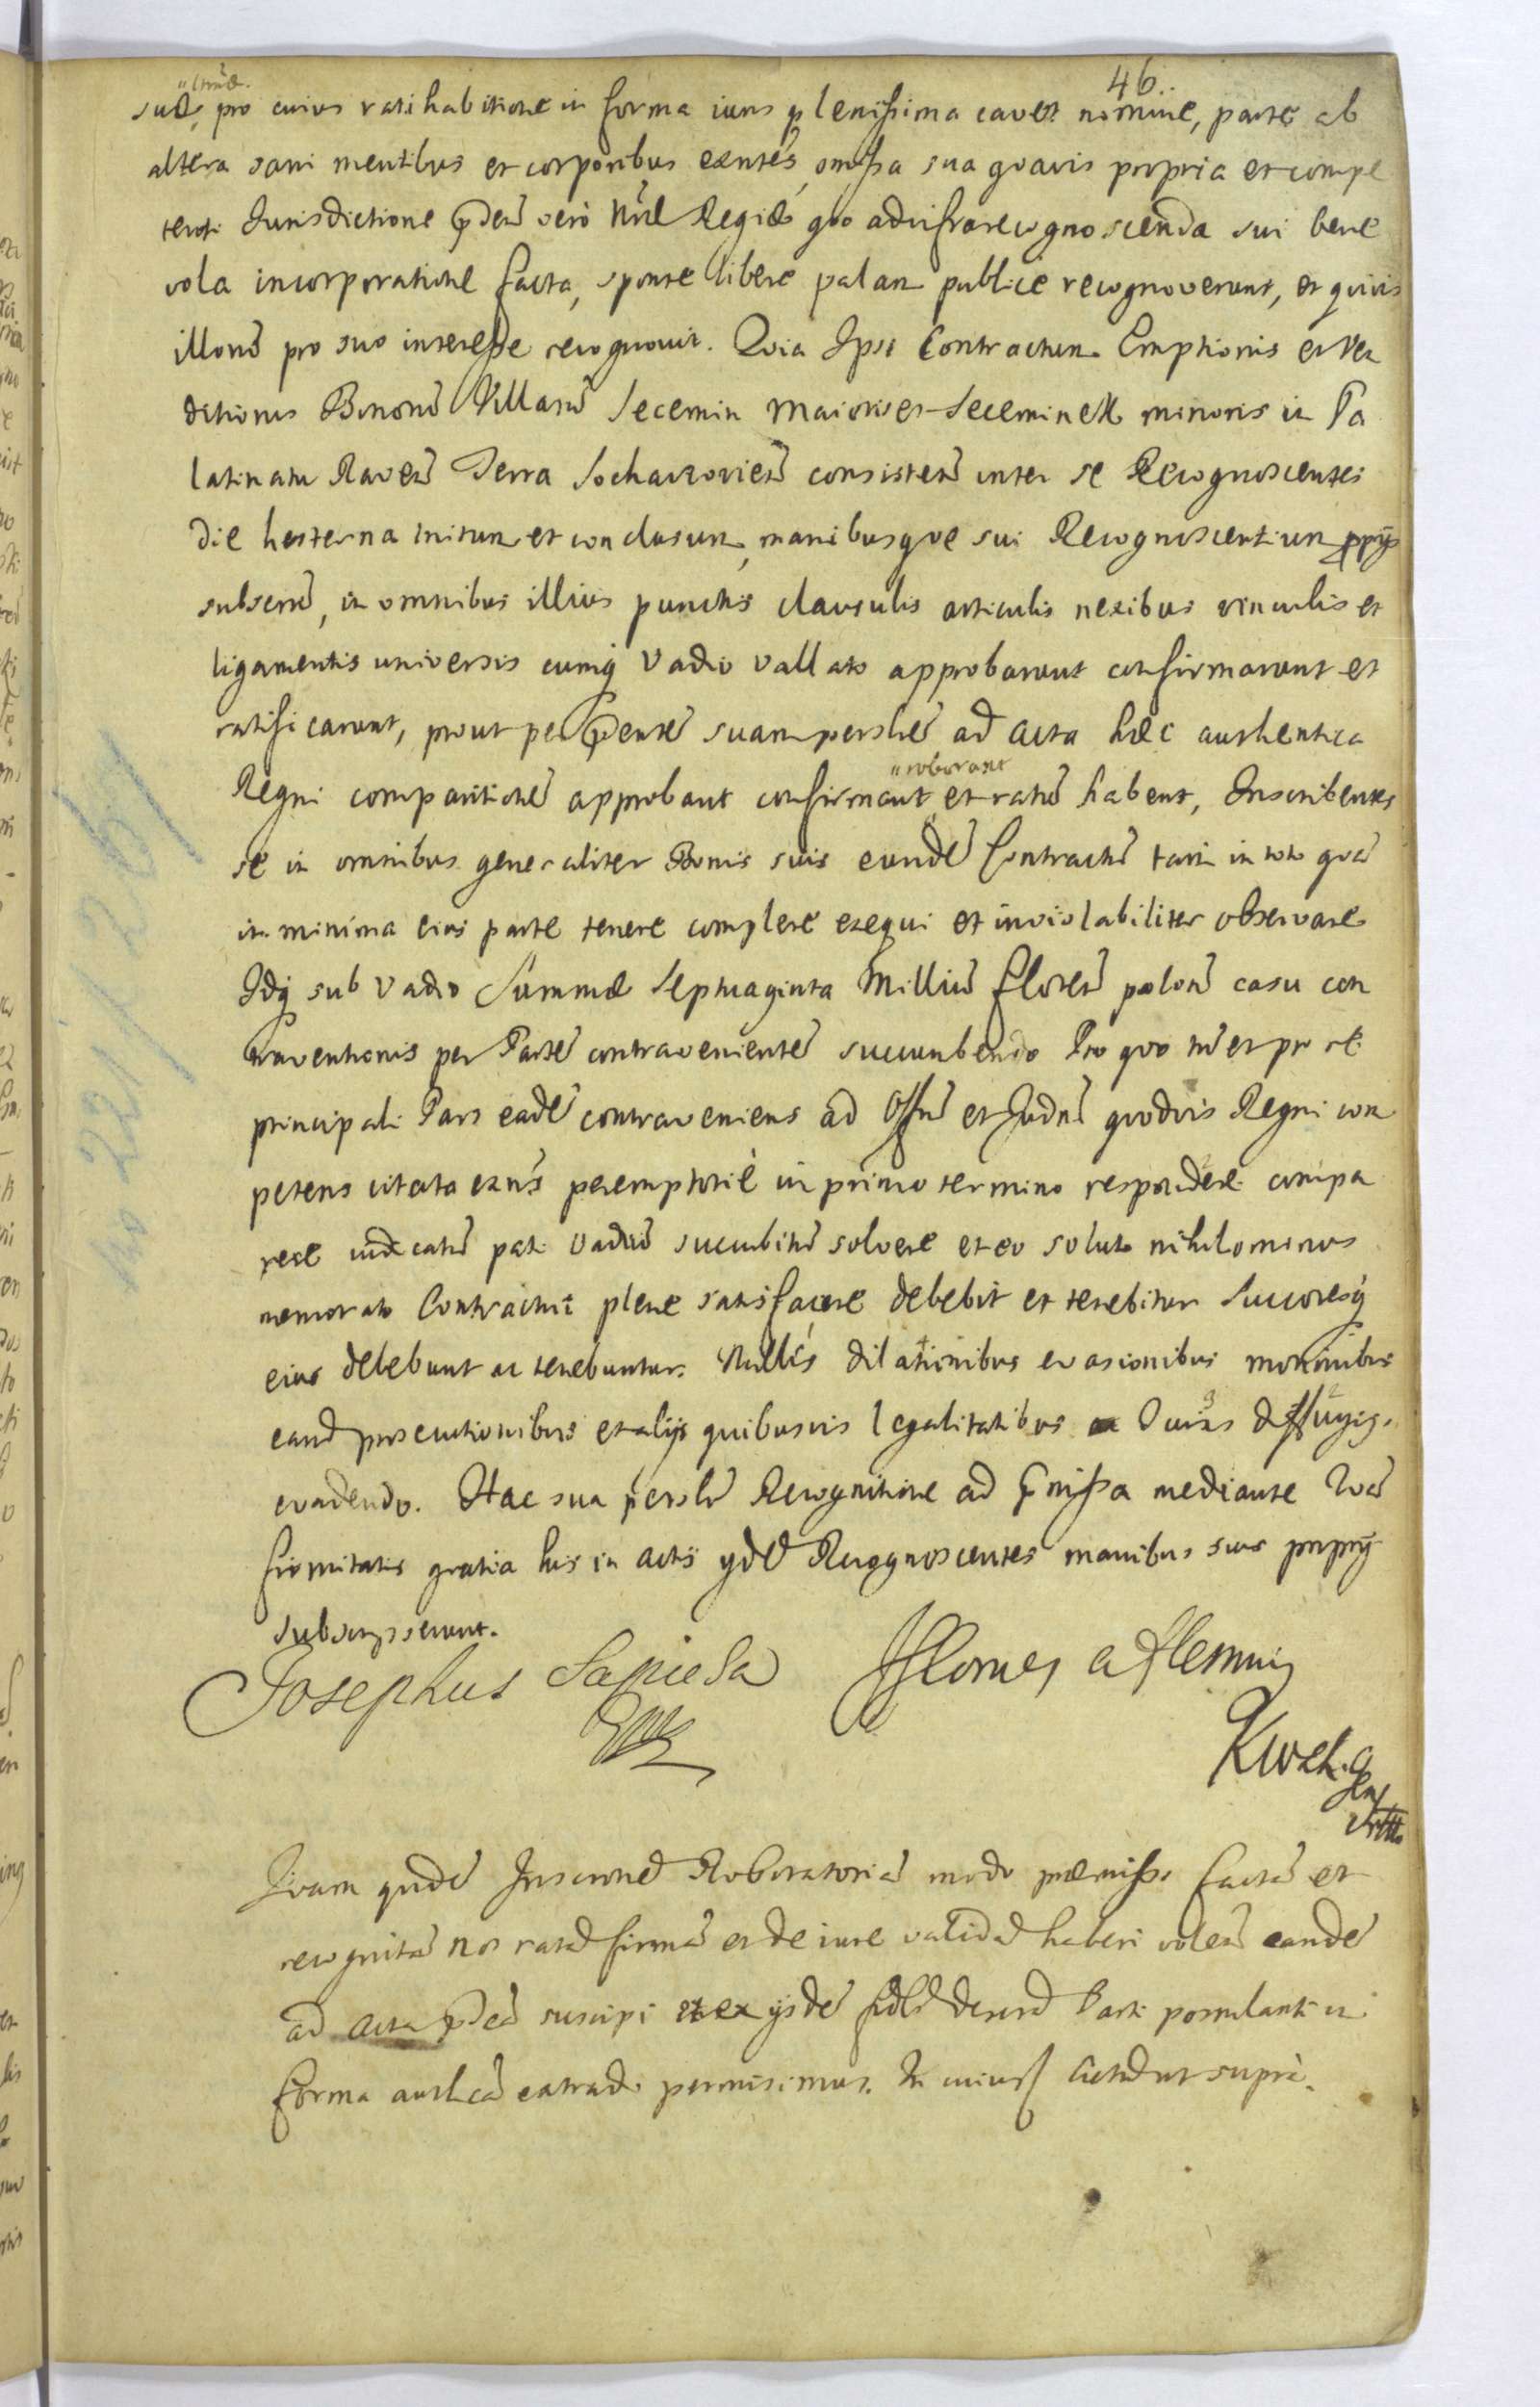 46.
suae, pro cuius ratihabitione in forma iuris plenissima cavet nomine, parte ab
altera sani mentibus et corporibus exntes, omissa sua quavis propria et compe
tenti Jurisdictione pdem vero Nrae Regiae quo ad infra recognoscenda sui bene
vola incorporatione facta, sponte libere palam publice recognoverunt, et quivis
illorum pro suo interesse recognovit. Quia Ipsi Contractum Emptionis et Ven
ditionis Bonorum Villarum Secemin Maioris et Seceminek minoris in Pa
latinatu Raven Terra Sochaczovien consisten inter se Recognoscentes
die hesterna initum et conclusum, manibusque sui Recognoscentium ppijs
subscrm, in omnibus illius punctis clausulis articulis nexibus vinculis et
ligamentis universis cumq vadio vallato approbarunt confirmarunt et
ratificarunt, prout per pntem suam persłem ad acta haec authentica
"roborant
Regni comparitionem approbant confirmant et ratum habent, Inscribentes
se in omnibus generaliter Bonis suis eundem Contractum tam in toto quam
in minima eius parte tenere complere exequi et inviolabiliter observare
Idq sub vadio Summae Septuaginta Millium floren polon casu con
traventionis per Partem contravenientem succumbendo Pro quo tum et pro re
principali Pars eadem contraveniens ad Offm et Judm quodvis Regni com
petens citata exns peremptorie in primo termino respondere compa
rere iudicatum pati vadium succubitum solvere et eo soluto nihilominus
memorato Contractui plene satisfacere debebit et tenebitur Succoresq
eius debebunt ac tenebuntur. Nullis dilationibus evasionibus motionibus
eand prosecutionibus et alijs quibusvis legalitatibus Juris diffugijs.
evadendo. Hac sua persłi Recognitione ad pmissa mediante Quam
firmitatis gratia his in actis ijdem Recognoscentes manibus suis proprijs
subscripserunt.
Josephus Sapieha Flemmig
Quam quidem Inscrnem Roboratoriam modo praemisso factam et
recognitam nos ratam firmam et de iure validam haberi volen eandem
ad acta pntia suscipi et ex ijsdem Parti postulanti in
forma authca extradi permisimus. In cuius Actum ut supra.